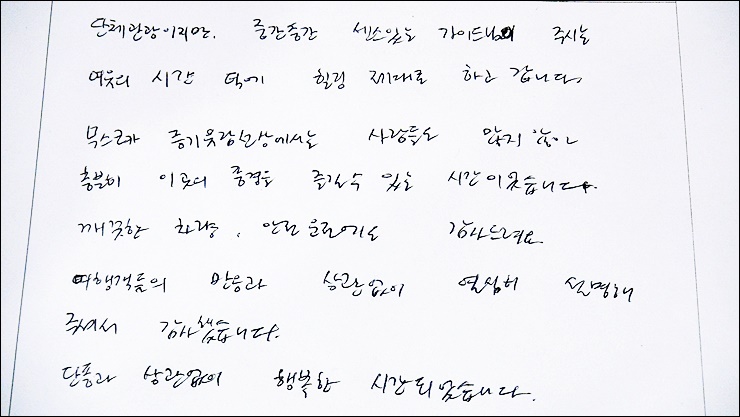 단체관광이지만, 중간중간 센스있는 가이드님의 주시는
여유의 시간 덕에 힐링 제대로 하고 갑니다.
무스코카 증기유람선상에서는 사람들도 많지 않아
충분히 이곳의 풍경을 즐길수 있는 시간이었습니다.
깨끗한 차량, 안전운전에도 감사드려요.
여행객들의 반응과 상관없이 열심히 설명해
주셔서 감사했습니다.
단풍과 상관없이 행복한 시간되었습니다.